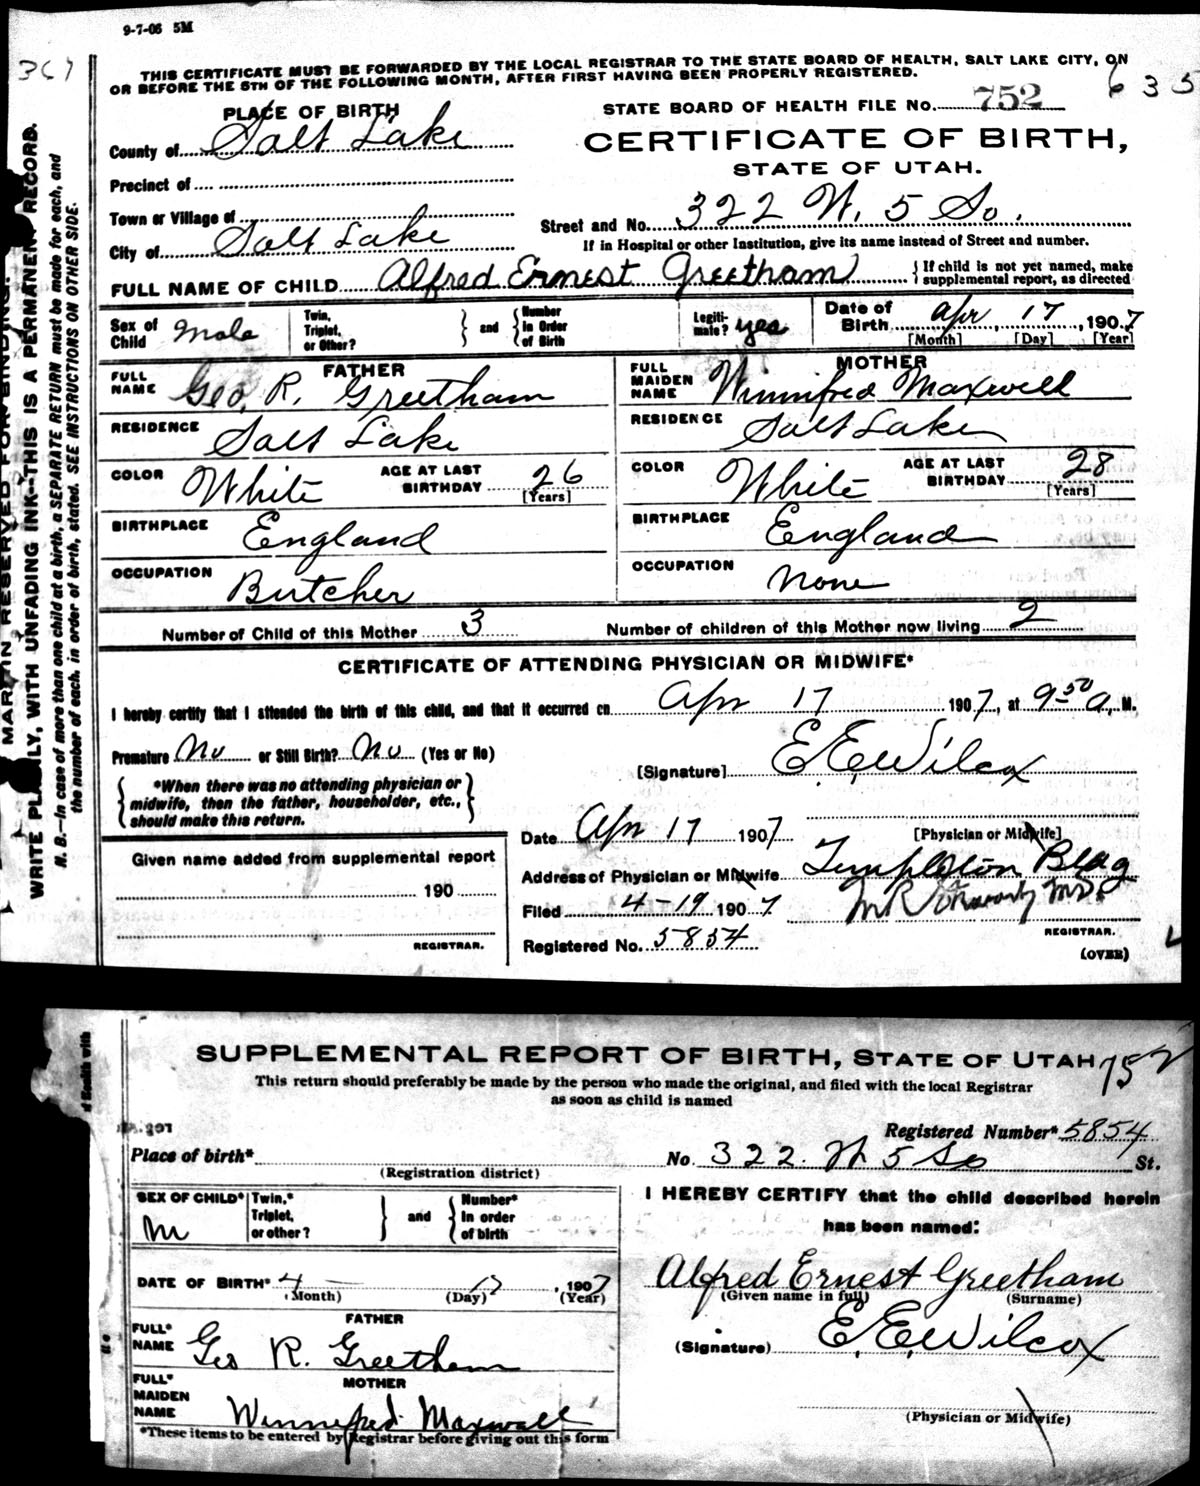 9-7-06 5M
367
THIS CERTIFICATE MUST BE FORWARDED BY THE LOCAL REGISTRAR TO THE STATE BOARD OF HEALTH, SALT LAKE CITY, ON
OR BEFORE THE 5TH OF THE FOLLOWING MONTH, AFTER FIRST HAVING BEEN PROPERLY REGISTERED.
635
PLACE OF BIRTH
STATE BOARD OF HEALTH FILE NO. 752
County of Salt Lake
CERTIFICATE OF BIRTH,
STATE OF UTAH.
Precinct of
Town or Village of
Street and No. 322 W. 5 So.
City of Salt Lake
If in Hospital or other Institution, give its name instead of Street and number.
FULL NAME OF CHILD Alfred Ernest Greetham
{If child is not yet named, make
supplemental report, as directed
Sex of Child Male
Twin, Triplet, or Other? } and { Number in Order of Birth
Legiti-mate? yes
Date of Birth Apr 17, 1907
[Month] [Day] [Year]
FATHER
FULL NAME Geo. R. Greetham
MOTHER
FULL MAIDEN NAME Winnifred Maxwell
RESIDENCE Salt Lake
RESIDENCE Salt Lake
COLOR White AGE AT LAST BIRTHDAY 26 [Years]
COLOR White AGE AT LAST BIRTHDAY 28 [Years]
BIRTHPLACE England
BIRTHPLACE England
OCCUPATION Butcher
OCCUPATION None
Number of Child of this Mother 3 Number of children of this Mother now living 2
CERTIFICATE OF ATTENDING PHYSICIAN OR MIDWIFE*
I hereby certify that I attended the birth of this child, and that it occurred on Apr 17 1907, at 9 50 a, M.
Premature No or Still Birth? No (Yes or No)
[Signature] E. E. Wilcox
*When there was no attending physician or
midwife, then the father, householder, etc.,
should make this return.
Date Apr 17 1907
[Physician or Midwife]
Given name added from supplemental report
190
REGISTRAR.
Address of Physician or Midwife Templeton Bldg
Filed 4-19 1907
M.D.
REGISTRAR.
Registered No. 5854
(OVER)
MARGIN RESERVED FOR BINDING.
WRITE PLAINLY, WITH UNFADING INK—THIS IS A PERMANENT RECORD.
N. B.—In case of more than one child at a birth, a SEPARATE RETURN must be made for each, and
the number of each, in order of birth, stated. SEE INSTRUCTIONS ON OTHER SIDE.
SUPPLEMENTAL REPORT OF BIRTH, STATE OF UTAH
752
This return should preferably be made by the person who made the original, and filed with the local Registrar
as soon as child is named
Registered Number* 5854
Place of birth*
(Registration district)
No. 322. W 5 So St.
SEX OF CHILD* M
Twin,* Triplet, or other? } and { Number* in order of birth
I HEREBY CERTIFY that the child described herein
has been named:
DATE OF BIRTH* 4 — 17, 1907
(Month) (Day) (Year)
Alfred Ernest Greetham
(Given name in full) (Surname)
FATHER
FULL* NAME Geo R. Greetham
(Signature) E. E. Wilcox
MOTHER
FULL* MAIDEN NAME Winnefred Maxwell
(Physician or Midwife)
*These items to be entered by Registrar before giving out this form